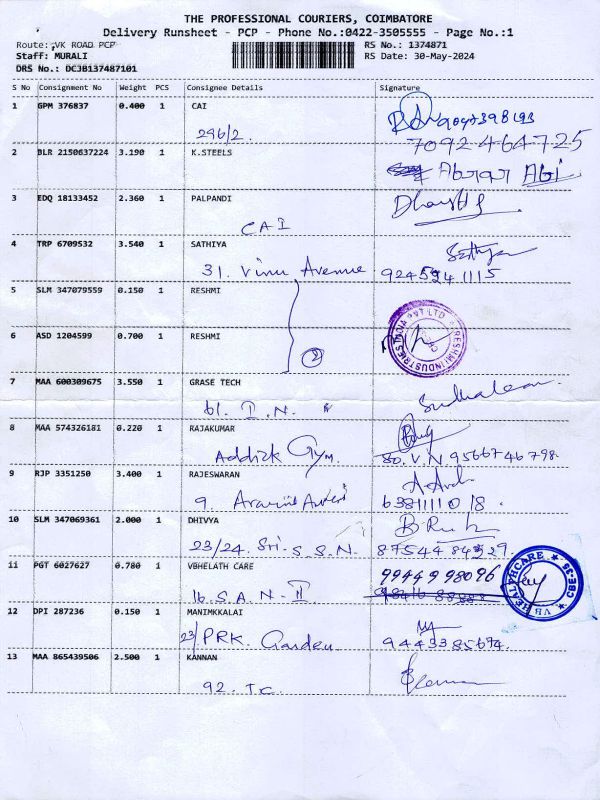 THE PROFESSIONAL COURIERS, COIMBATORE
Delivery Runsheet - PCP - Phone No.:0422-3505555 - Page No.:1
Route: VK ROAD PCP RS No.: 1374871
Staff: MURALI RS Date: 30-May-2024
DRS No.: DCJB137487101
S No Consignment No Weight PCS Consignee Details Signature
1 GPM 376837 0.400 1 CAI
296/2.
7092464725
2 BLR 2150637224 3.190 1 K.STEELS
Abi
3 EDQ 18133452 2.360 1 PALPANDI
CAI
4 TRP 6709532 3.540 1 SATHIYA Sathya
31. Vinu Avenue
5 SLM 347079559 0.150 1 RESHMI
RESHMI INDUSTRIES PVT LTD
6 ASD 1204599 0.700 1 RESHMI
2
7 MAA 600309675 3.550 1 GRASE TECH
61. I.N.
8 MAA 574326181 0.220 1 RAJAKUMAR
Addick Gym. 80.V.N 9566746798.
9 RJP 3351250 3.400 1 RAJESWARAN
9. 6381111018.
10 SLM 347069361 2.000 1 DHIVYA
23/24. Sri. S.S.N.
11 PGT 6027627 0.780 1 VBHELATH CARE 9944998096
16. S.A.N-II
VB HEALTHCARE CBE-35
12 DPI 287236 0.150 1 MANIMKKALAI
23/PRK. Garden 9443385694.
13 MAA 865439506 2.500 1 KANNAN
92. T.C.